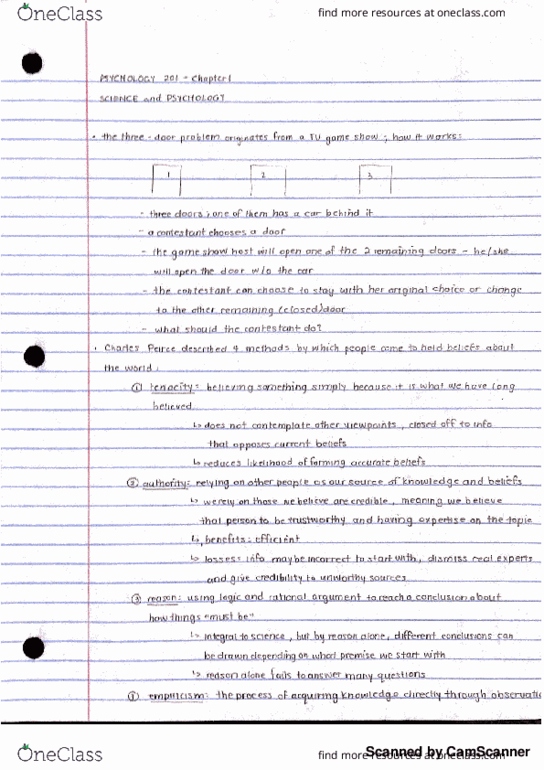 OneClass
find more resources at oneclass.com
PSYCHOLOGY 201 - Chapter 1
SCIENCE and PSYCHOLOGY
• the three-door problem originates from a TV game show; how it works:
1 2 3
- three doors; one of them has a car behind it
- a contestant chooses a door
- the game show host will open one of the 2 remaining doors - he/she
will open the door w/o the car
- the contestant can choose to stay with her original choice or change
to the other remaining (closed) door
- what should the contestant do?
• Charles Peirce described 4 methods by which people come to hold beliefs about
the world:
① tenacity: believing something simply because it is what we have long
believed
↳ does not contemplate other viewpoints, closed off to info
that opposes current beliefs
↳ reduces likelihood of forming accurate beliefs
② authority: relying on other people as our source of knowledge and beliefs
↳ we rely on those we believe are credible, meaning we believe
that person to be trustworthy and having expertise on the topic
↳ benefits: efficient
↳ losses: info may be incorrect to start with, dismiss real experts
and give credibility to unworthy sources
③ reason: using logic and rational argument to reach a conclusion about
how things "must be"
↳ integral to science, but by reason alone, different conclusions can
be drawn depending on what premise we start with
↳ reason alone fails to answer many questions
④ empiricism: the process of acquiring knowledge directly through observatio
OneClass
find more resources at oneclass.com
Scanned by CamScanner